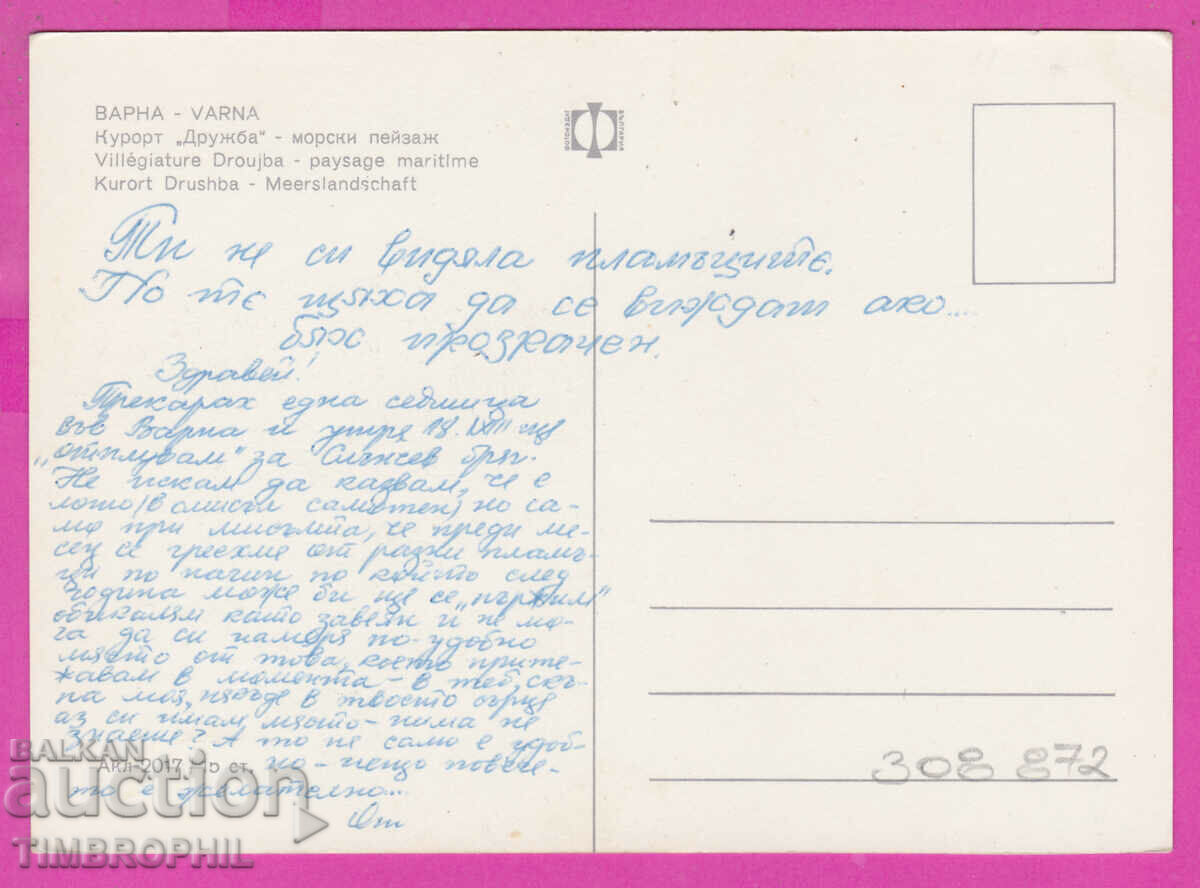 ВАРНА - VARNA
Курорт „Дружба" - морски пейзаж
Villégiature Droujba - paysage maritime
Kurort Drushba - Meerslandschaft
ФОТОИЗДАТ
БЪЛГАРИЯ
Ти не си видяла пламъците.
Но те щяха да се виждат ако....
бях прозрачен.
Здравей!
Прекарах една седмица
във Варна и утре 18. VIII ще
„отплувам" за Слънчев бряг.
Не искам да казвам, че е
лошо (в смисъл самотен) но са-
мо при мисълта, че преди ме-
сец се греехме от разни пламъ-
ци по начин по който след
година може би ще се „пържим"
обикалям като завеян и не мо-
га да си намеря по-удобно
място от това, което прите-
жавам в момента - в теб, скъ-
па моя, някъде в твоето сърце
аз си имам място - нима не
знаеше? А то не само е удоб-
но - нещо повече -
то е желателно...
От
Акл-2017
ст.
308 872
BALKAN
auction
TIMBROPHIL